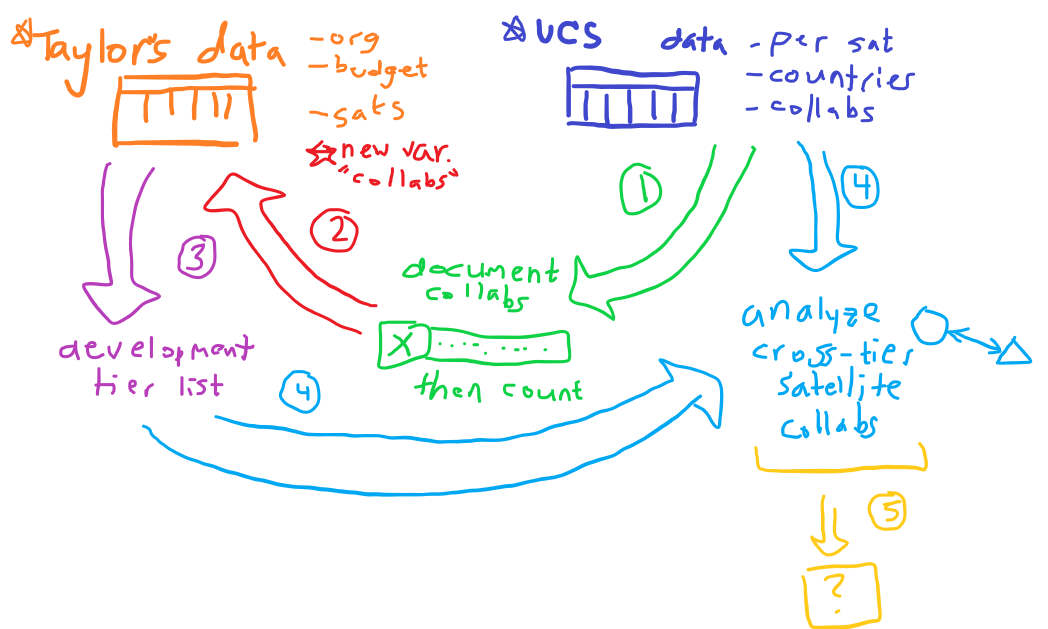 Taylor's data
- org
- budget
- sats
new var.
"collabs"
UCS data
- per sat
- countries
- collabs
1
document
collabs
X
then count
2
3
development
tier list
4
4
analyze
cross-tier
satellite
collabs
5
?